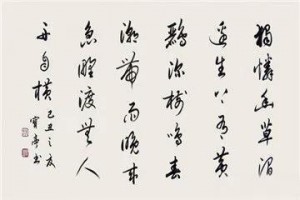 獨憐幽草澗
邊生上有黃
鸝深樹鳴春
潮帶雨晚來
急野渡無人
舟自橫
己丑之夏
亭書